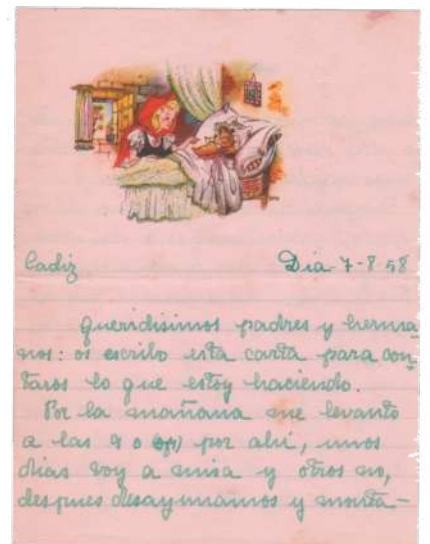 Cadiz Dia-7-8 58
queridisimos padres y herma
nos: os escribo esta carta para con_
taros lo que estoy haciendo.
Por la mañana me levanto
a las 9 o por ahi, unos
dias voy a misa y otros no,
despues desayunamos y monta-